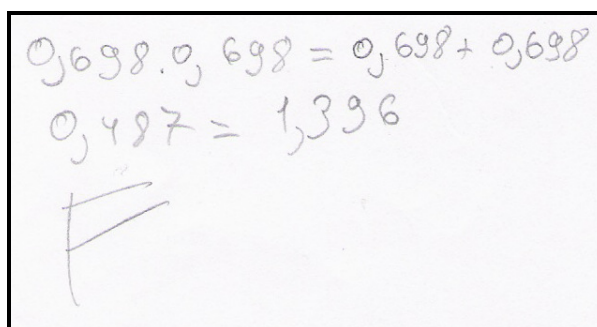 0,698.0,698 = 0,698+ 0,698
0,487 = 1,396
F